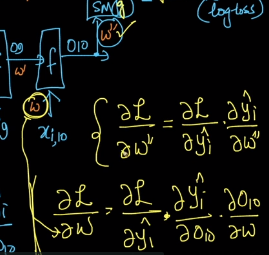 SM
(log-loss)
O9
w'
f
O10
w''
w
x_{i,10}
∂L/∂w'' = ∂L/∂ŷ_i · ∂ŷ_i/∂w''
∂L/∂w = ∂L/∂ŷ_i · ∂ŷ_i/∂O_{10} · ∂O_{10}/∂w